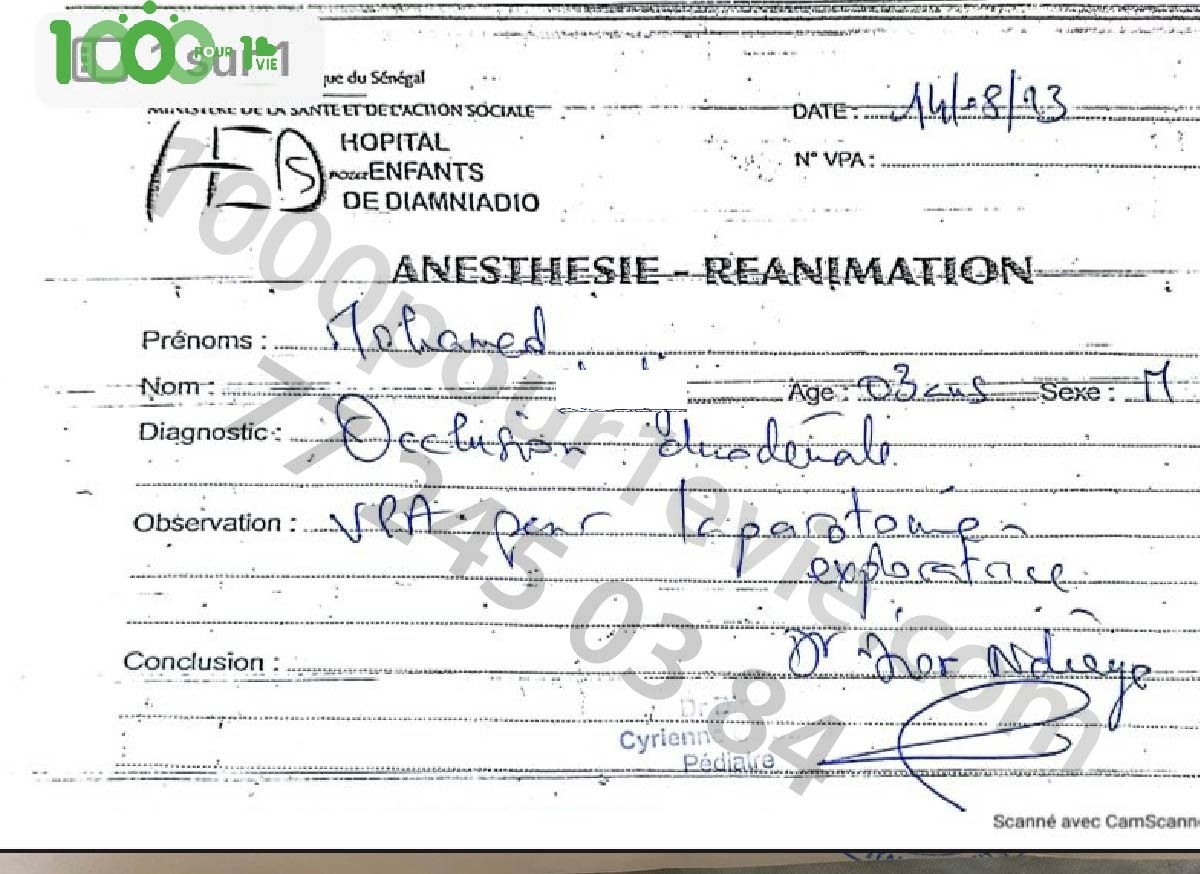 1000 POUR 1 VIE
1 sur 1
que du Sénégal
MINISTERE DE LA SANTE ET DE L'ACTION SOCIALE
DATE : 14/08/23
HOPITAL
POUR ENFANTS
DE DIAMNIADIO
N° VPA :
ANESTHESIE - REANIMATION
Prénoms : Mohamed
Nom : Age : 03 ans Sexe : M
Diagnostic : Occlusion duodénale
Observation : VPA pour laparotomie
exploratrice
Dr Ndieye
Conclusion :
Dr
Cyrienne
Pédiatre
1000pour1evie.com
77 245 03 84
Scanné avec CamScann